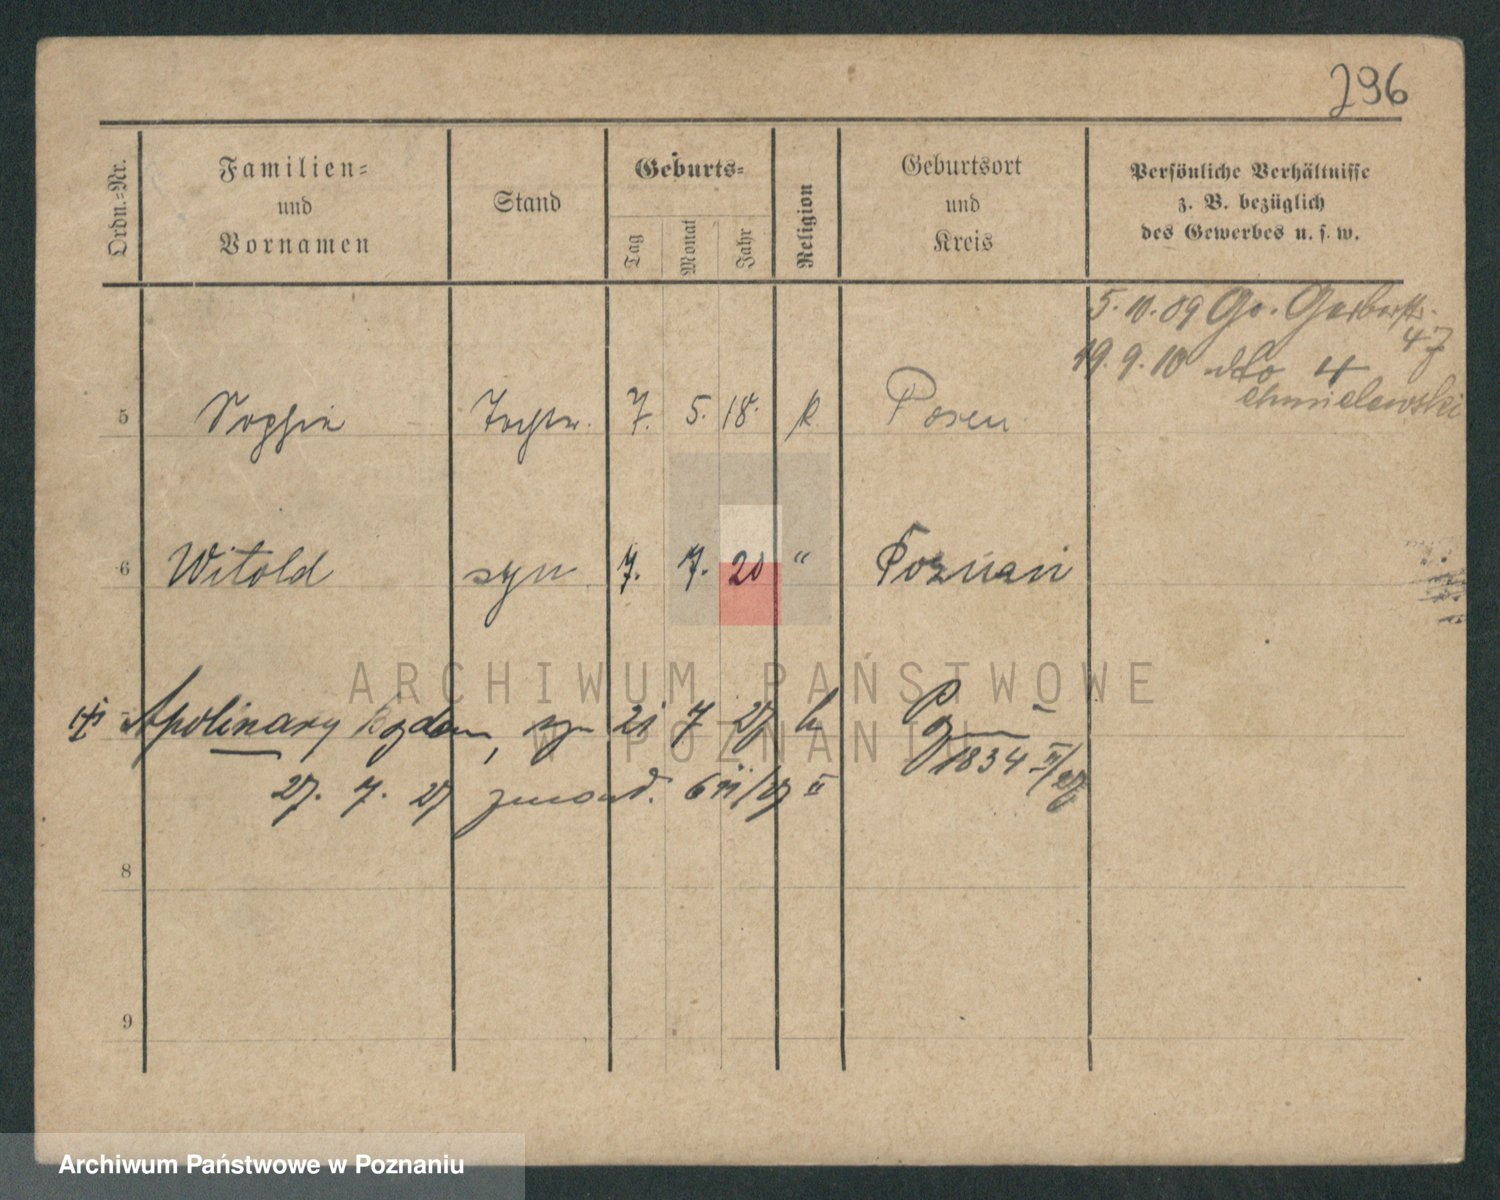 296
Ordn.=Nr.
Familien=
und
Vornamen
Stand
Geburts=
Tag
Monat
Jahr
Religion
Geburtsort
und
Kreis
Persönliche Verhältnisse
z. B. bezüglich
des Gewerbes u. s. w.
5. 10. 09 Gr. Gerberstr.
47
19. 9. 10 dto 4
Chmielewski
5 Sophie Tochter. 7. 5. 18. k Posen
6 Witold syn 7. 7. 20 " Poznań
Apolinary syn 21 7 27
1834
27. 7. 27
8
9
ARCHIWUM PAŃSTWOWE
W POZNANIU
Archiwum Państwowe w Poznaniu